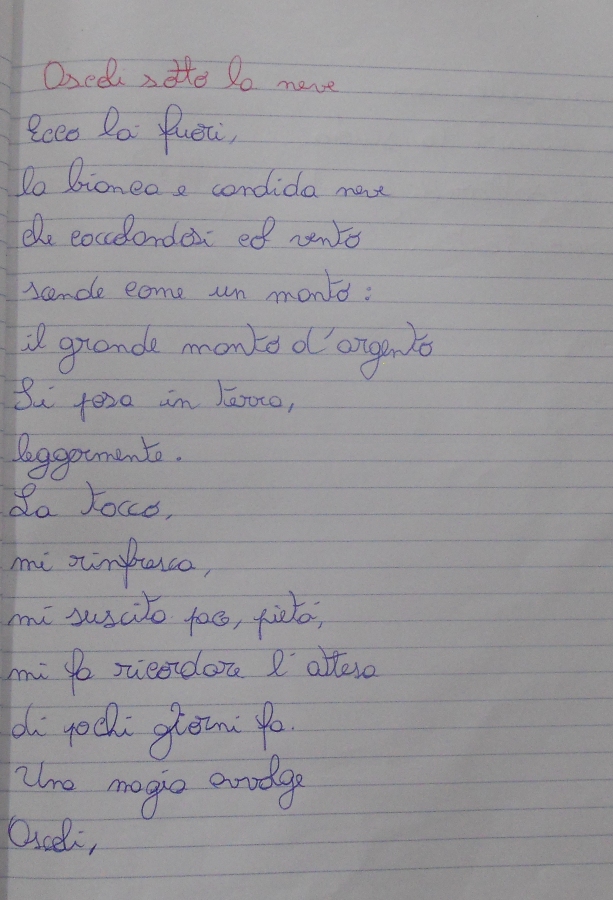 Osceli sotto la neve
Ecco là fuori,
la bianca e candida neve
che coccolandosi col vento
scende come un manto:
il grande manto d'argento
Si posa in terra,
leggermente.
La tocco,
mi rinfresca,
mi suscita pace, pietà,
mi fa ricordare l'attesa
di pochi giorni fa.
Una magia avvolge
Osceli,